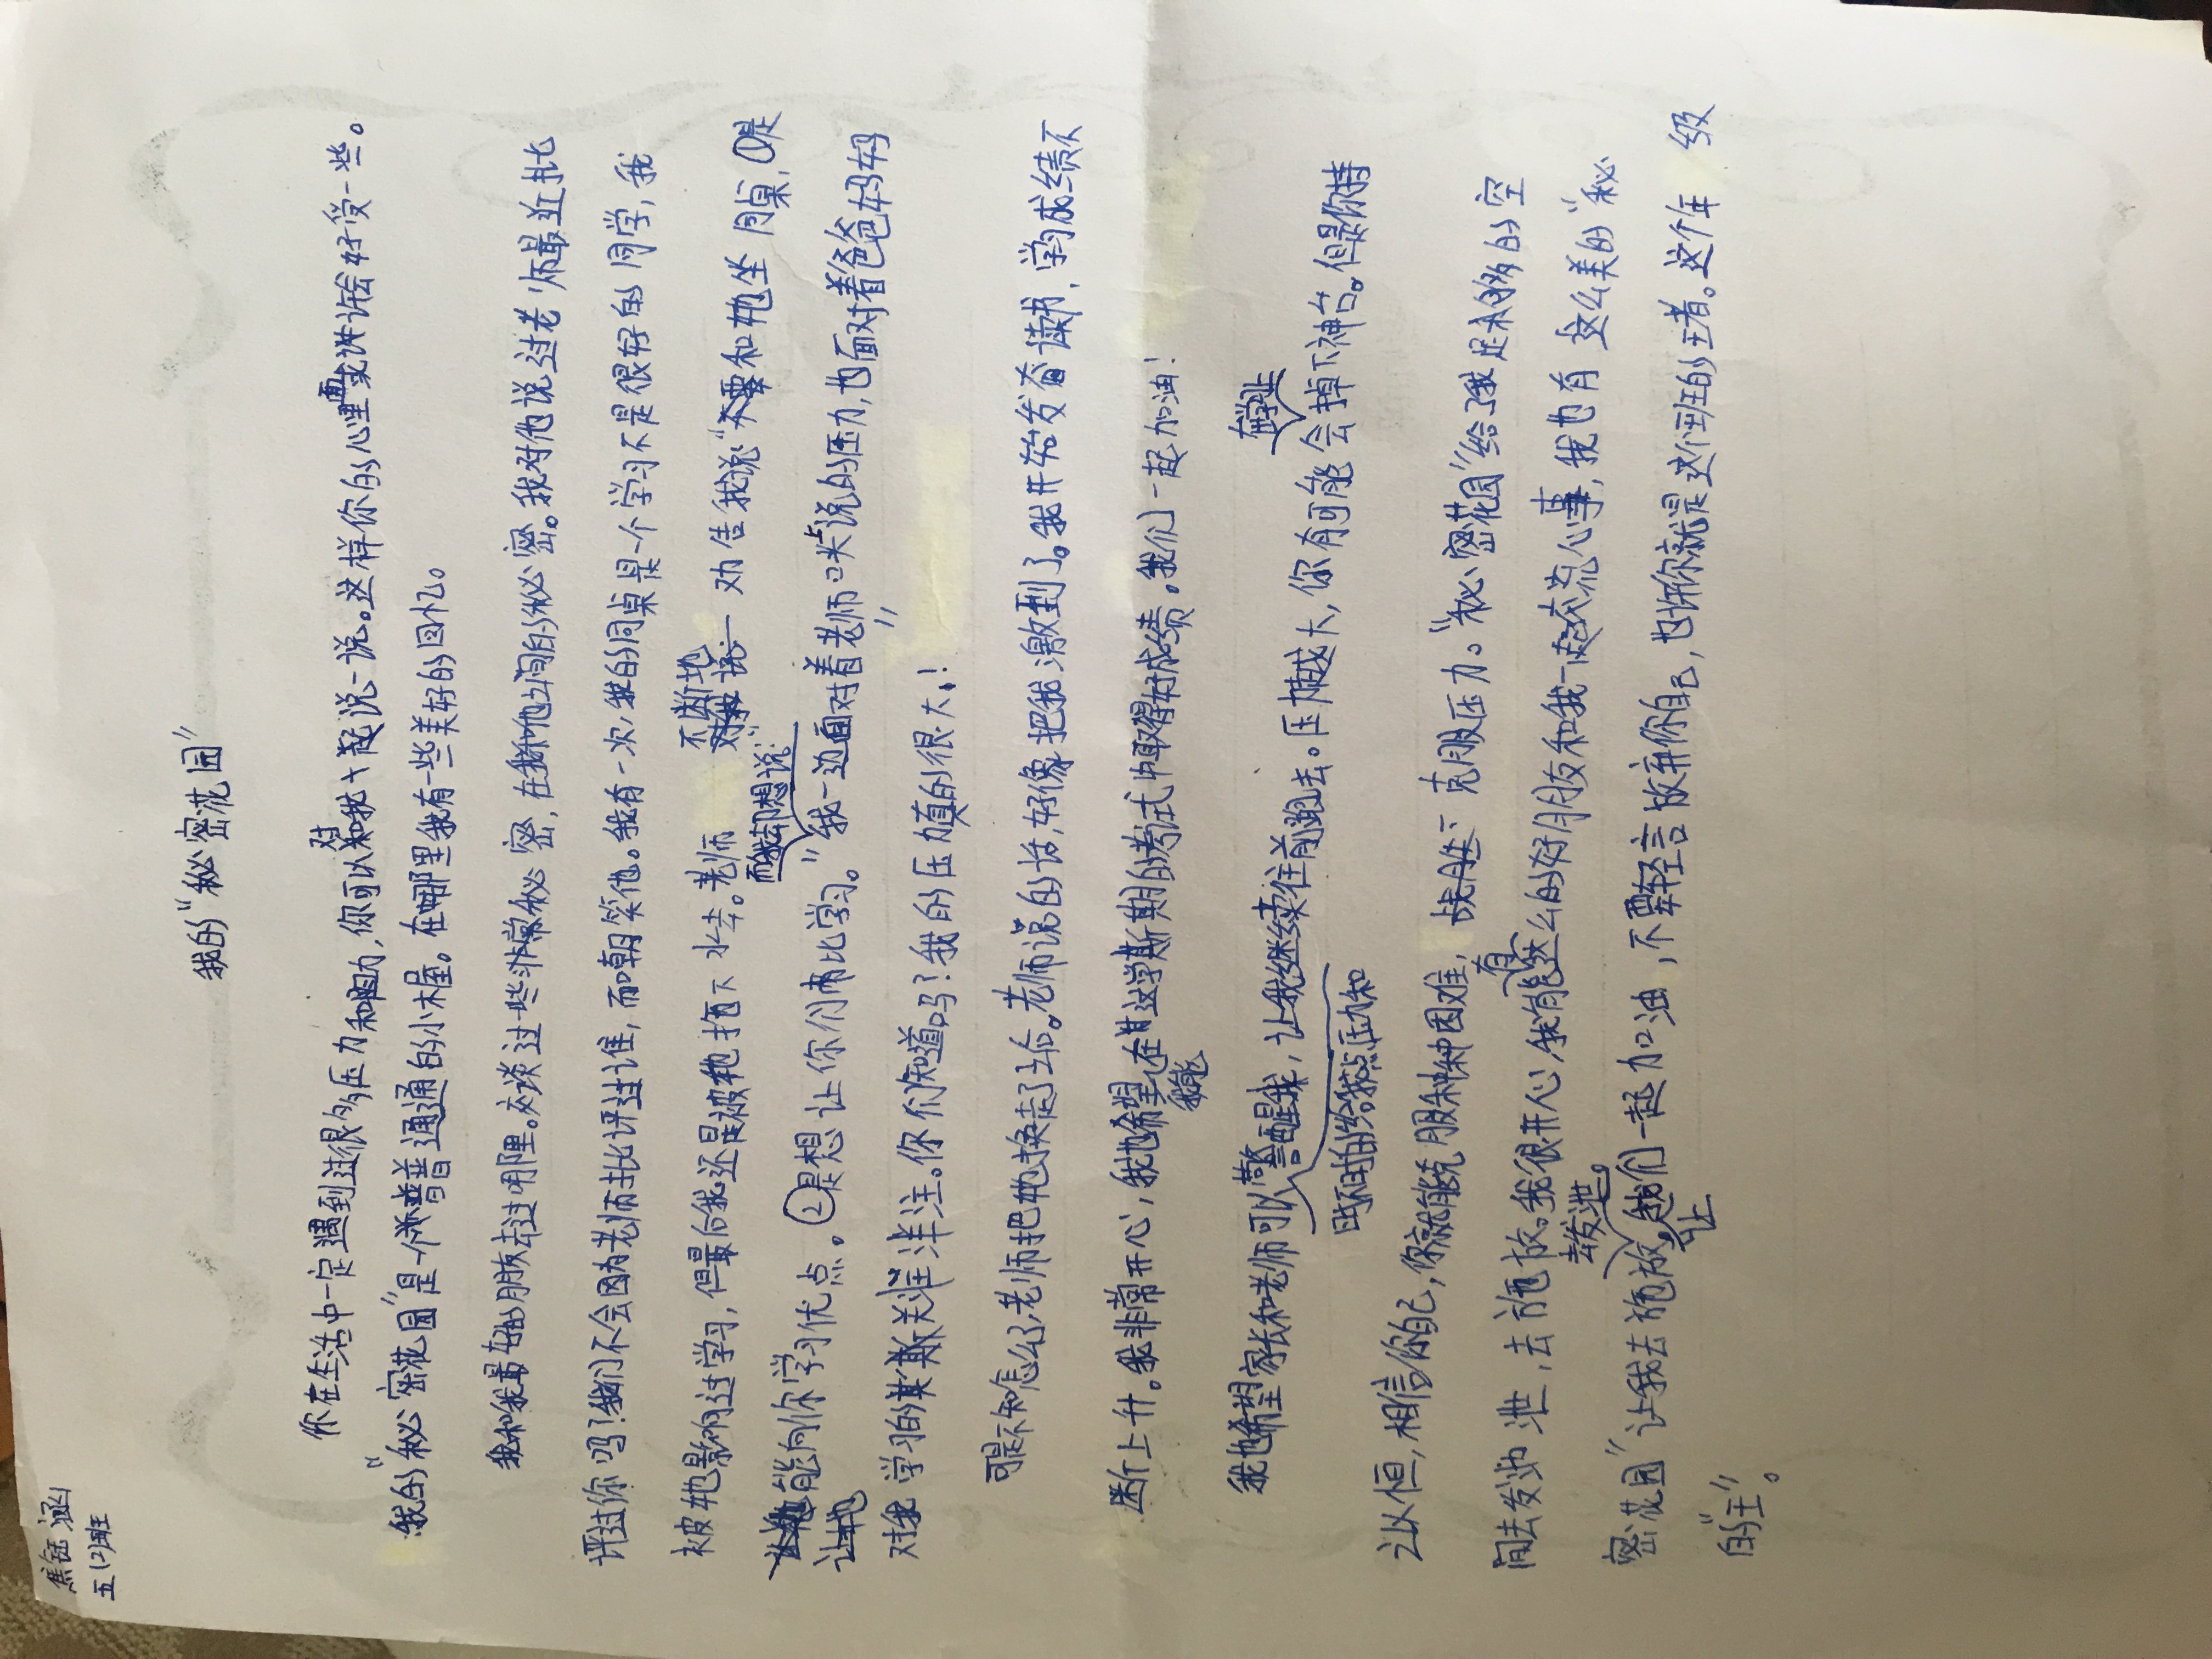 焦钰涵
五(2)班
我的“秘密花园”
你在生活中一定遇到过很多压力和困助,你可以对我说一说。这样你的心里面或许会好受一些。
“我的“秘密花园”是一个普普通通的小木屋。在哪里我有一些美好的回忆。
我和我最好的朋友去过哪里。交谈过一些非常秘密,在我和他之间的秘密。我对他说过老师最近批
评过你吗?我们不会因为老师批评过谁,而嘲笑他。我有一次,我的同桌是一个学习不是很好的同学,我
被她影响过学习,但最后我还是被她拖下水去。老师不断地劝告我说“不要和她坐同桌,①是
让她能向你学习优点。②是想让你们来比学习。”而我却想说“我一边面对着老师口头说的压力,也面对着爸爸妈妈
对我学习的关注。你们知道吗?我的压力真的很大!”
可是不知怎么了,老师把她换走了。老师说的话,好像把我激到了。我开始发奋读书,学习成绩不
断上升。我非常开心,我也希望我能在这学期的考试中取得好成绩。我们一起加油!
我也希望家长和老师可以时不时的给我点压力和警醒我,让我继续往前跑去。压力越大,你有可能会掉下神台。但是你持
之以恒,相信你自己,你就能克服种种困难,克服压力。“秘密花园”给了我足够多的空
间去发泄,去施放。我很开心,我能有这么的好朋友和我一起交流心事,我也有这么美的“秘
密花园”让我去施放,去发泄。让我们一起加油,不要轻言放弃你自己,也许你就是这个班的王者。这个年级
的“王”。